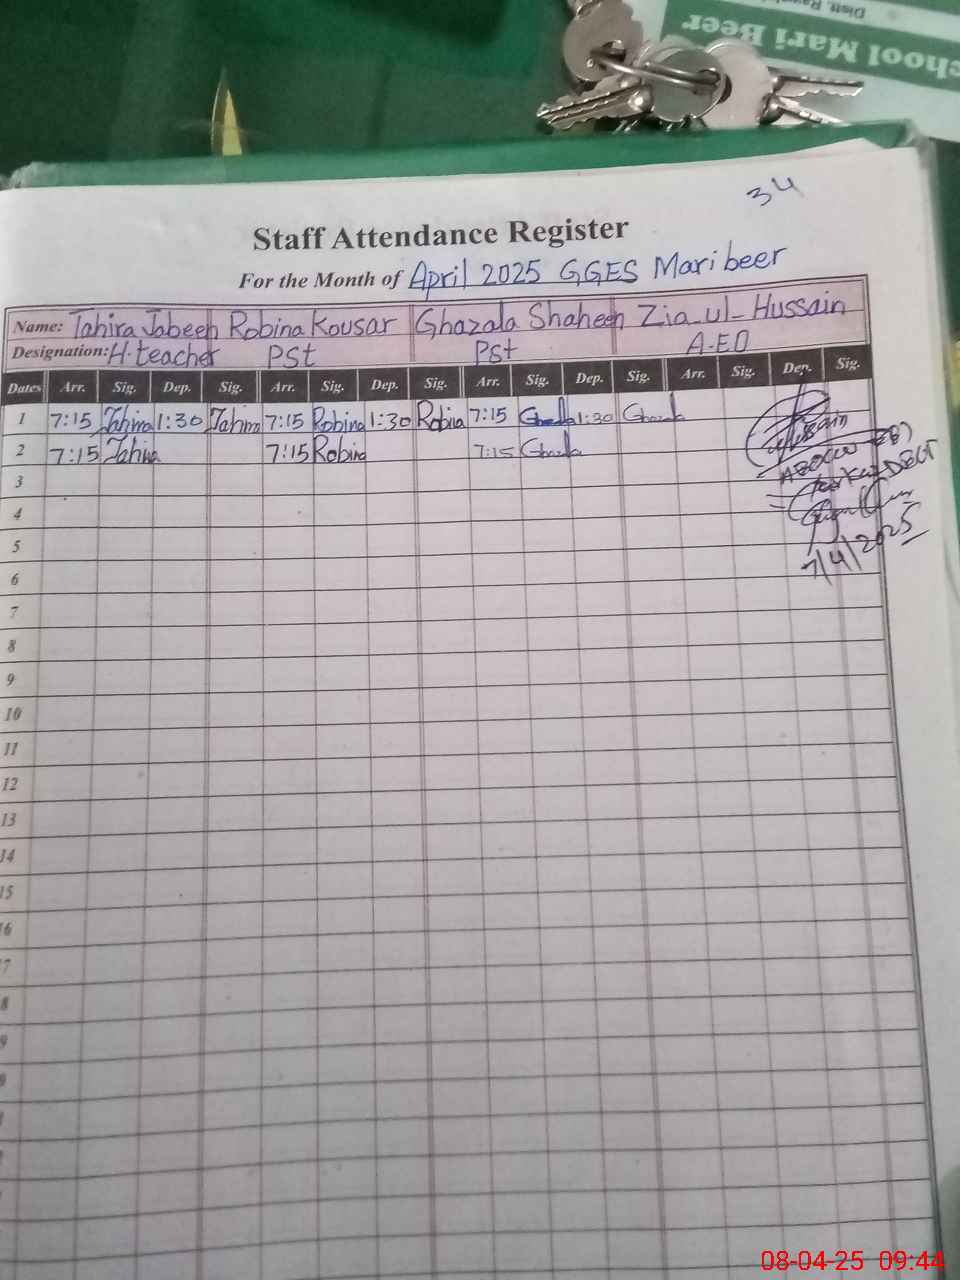 Distt. Rawal
chool Mari Beer
34
Staff Attendance Register
For the Month of April 2025 GGES Maribeer
Name: Tahira Jabeen Robina Kousar Ghazala Shaheen Zia-ul-Hussain
Designation: H.teacher PSt Pst A.EO
Dates Arr. Sig. Dep. Sig. Arr. Sig. Dep. Sig. Arr. Sig. Dep. Sig. Arr. Sig. Dep. Sig.
1 7:15 Tahira 1:30 Tahira 7:15 Robina 1:30 Robina 7:15 Ghazala 1:30 Ghazala
2 7:15 Tahira 7:15 Robina 7:15 Ghazala
3
4
5
6
7
8
9
10
11
12
13
14
15
6
7
8
9
7/4/2025
08-04-25 09:44